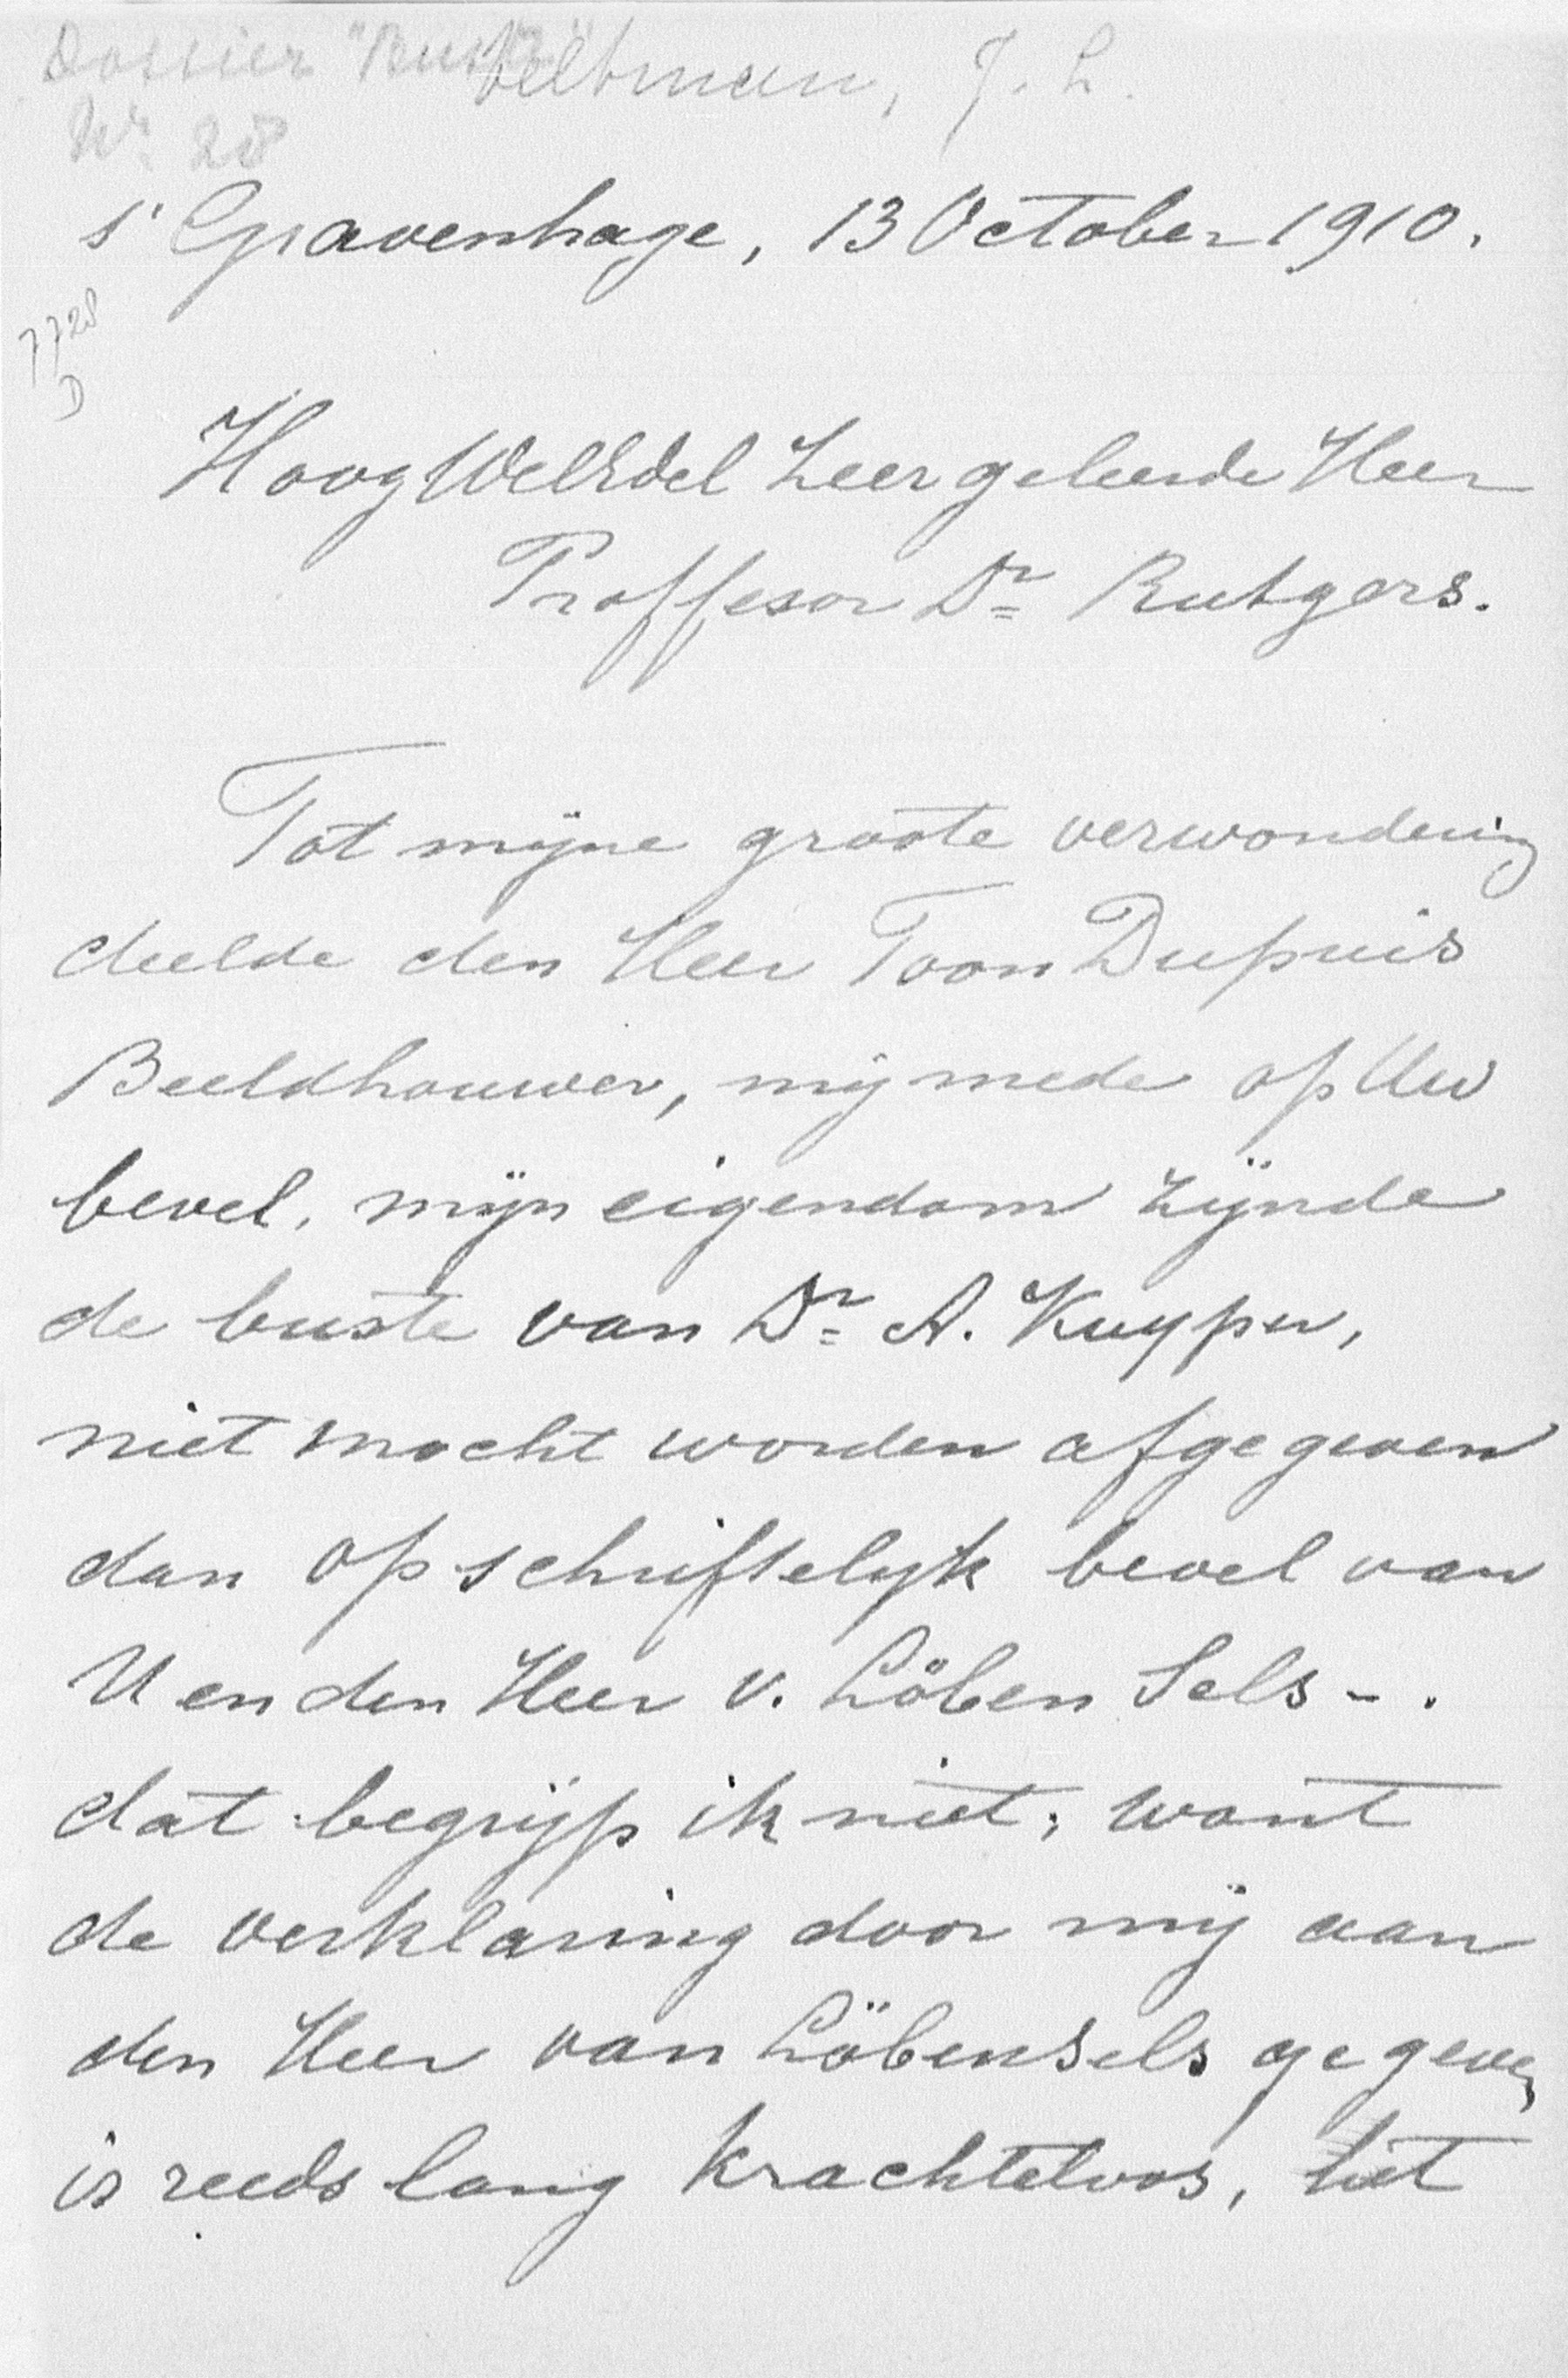 Dossier "Buste"
Veltman, J. L.
Nr. 28
s' Gravenhage, 13 October 1910.
7728
D
HoogWelEdel Zeergeleerde Heer
Proffesor Dr Rutgers.
Tot mijne groote verwondering
deelde den Heer Toon Dupuis
Beeldhouwer, mij mede op Uw
bevel, mijn eigendom zijnde
de buste van Dr A. Kuyper,
niet mocht worden afgegeven
dan op schriftelyk bevel van
U en den Heer v. Löben Sels -.
dat begrijp ik niet; want
de verklaring door mij aan
den Heer van Löbensels gegeven
is reeds lang krachteloos, het